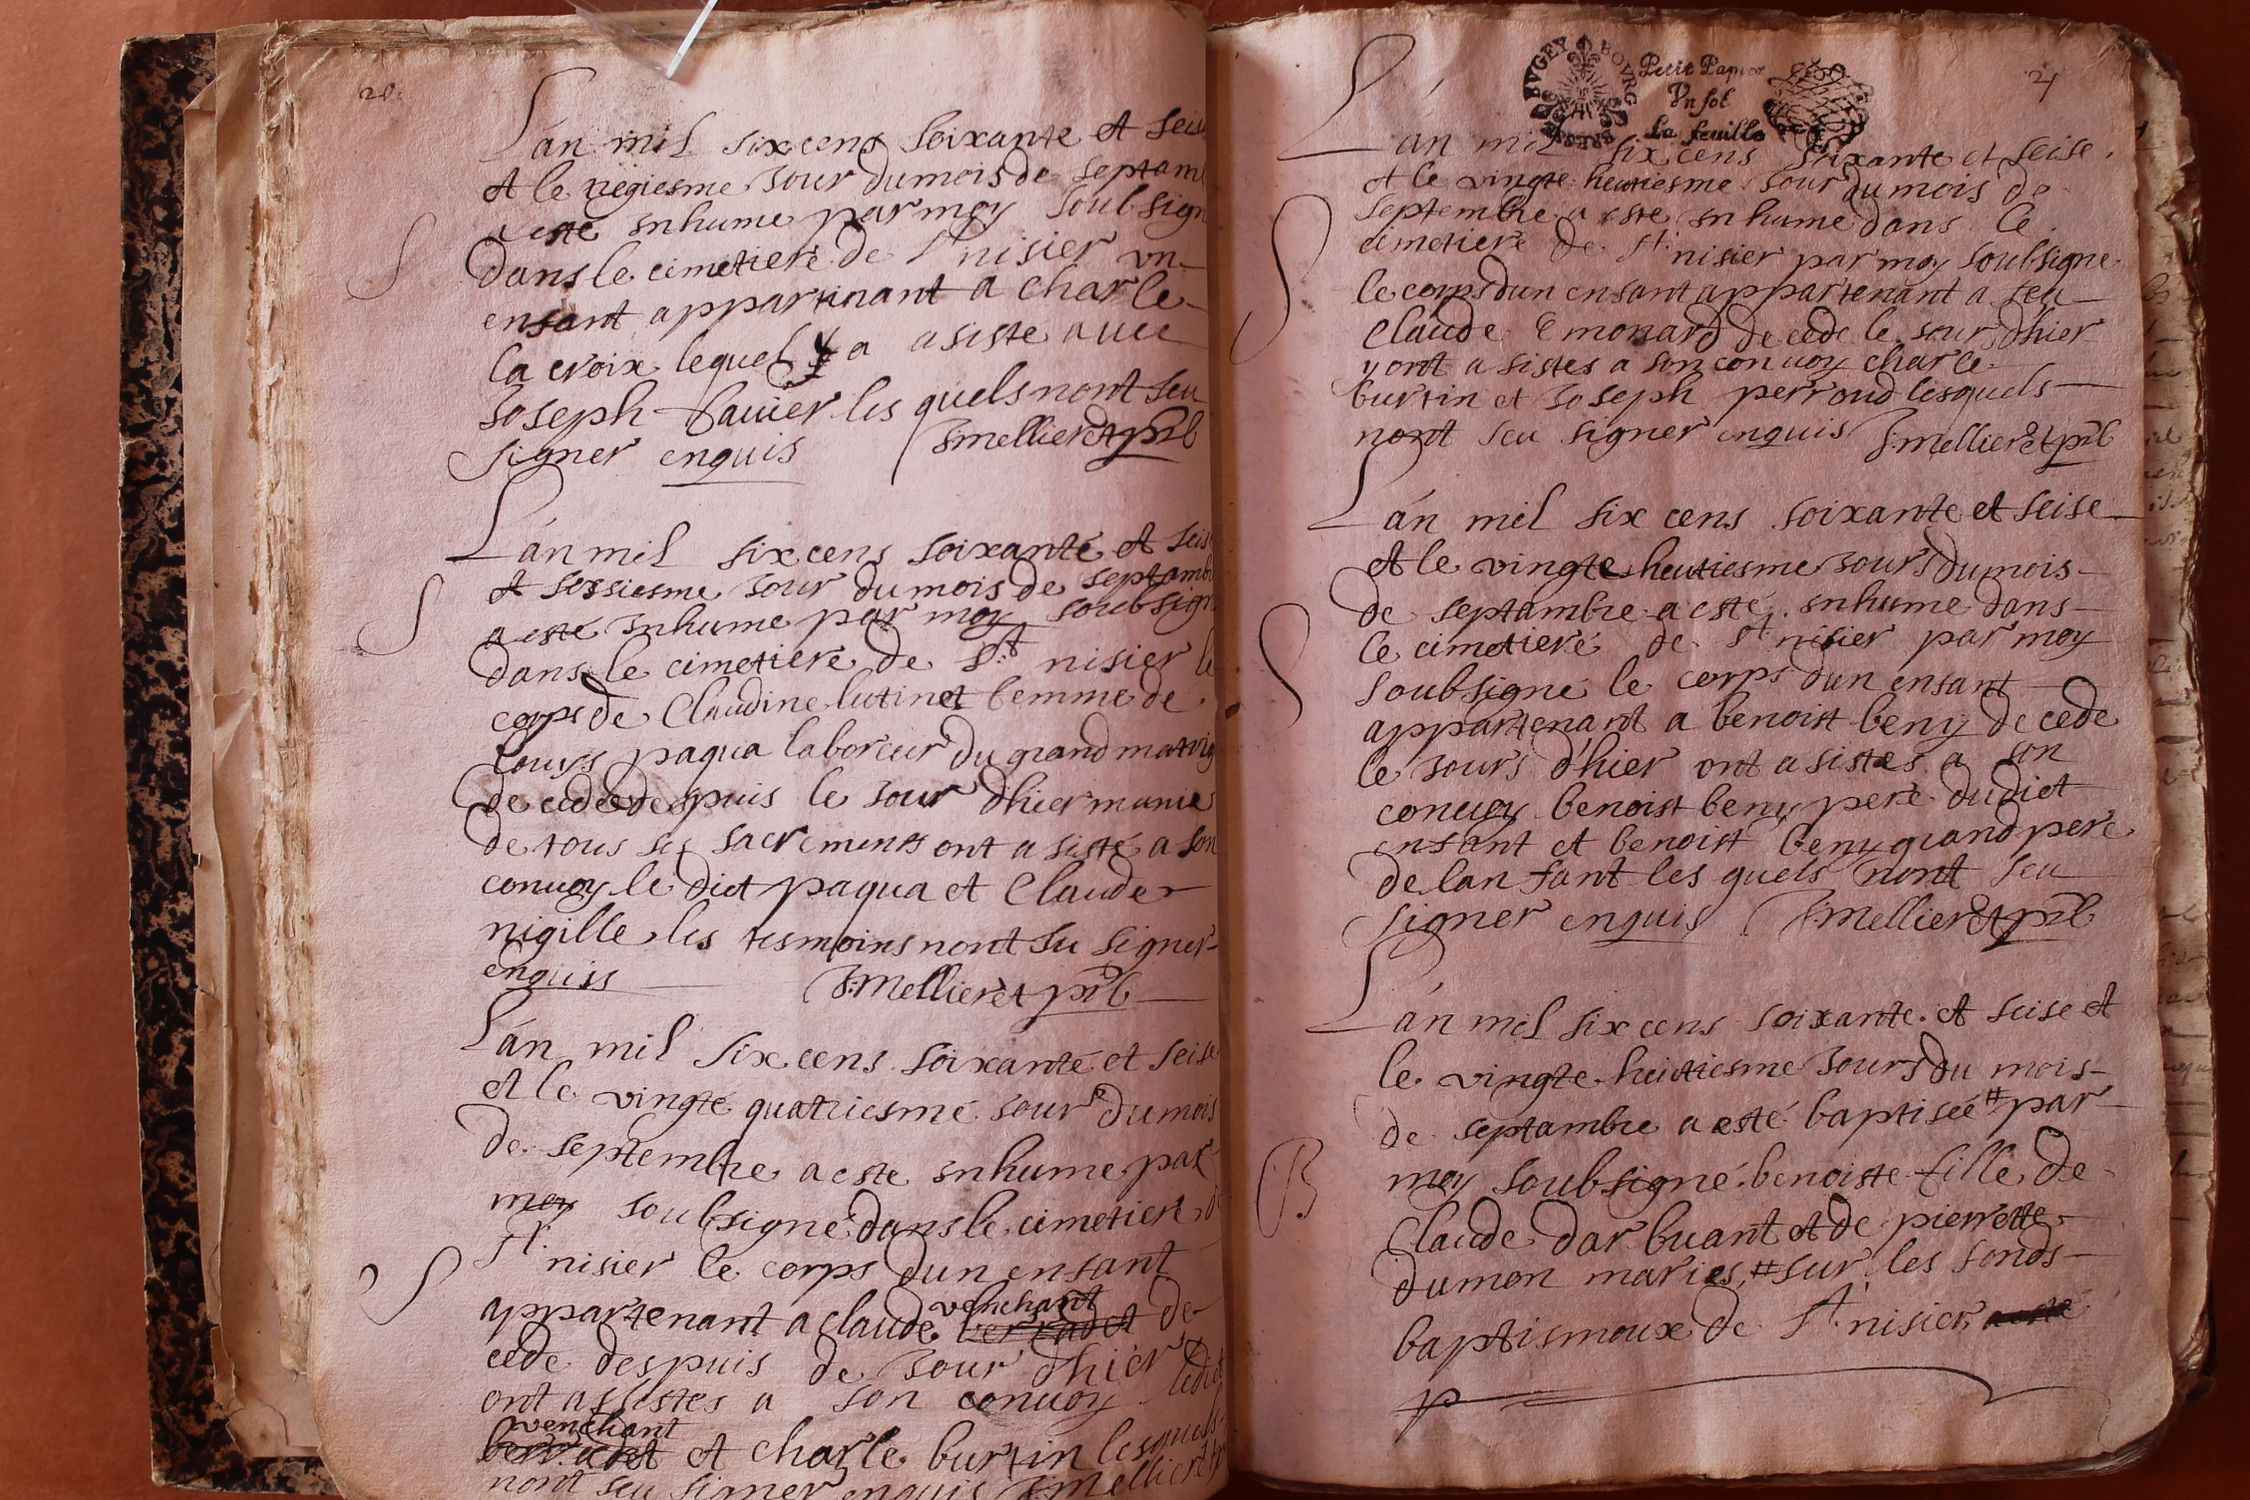 20
L'an mil six cens soixante et seis
et le
jour du mois de septam
a esté inhume par moy soubsign
dans le cimetiere de St nisier un
enfant appartinant a charle
la croix lequel y a asiste avec
Joseph favier les quels nont seu
signer enquis J: mellieret pbr
S
L'an mil six cens soixante et seis
et
jour du mois de septamb
a esté inhume par moy soubsign
dans le cimetiere de St nisier le
corps de Claudine lutinet femme de
louys paqua laboreur du grand
decedée despuis le jour dhier munie
de tous les sacrements ont asisté a son
convoy le dict paqua et Claude
nigille les tesmoins nont su signer
enquis J: Mellieret pbr
S
L'an mil six cens soixante et seise
et le vingte quatriesme jour du mois
de septembre a este inhume par
moy soubsigné dans le cimetiere de
St nisier le corps dun enfant
S
appartenant a claude venchant de
cede despuis de jour dhier
ont assistes a son convoy ledict
venchant et charle burtin lesquels
nont seu signer enquis J: mellieret
BUGEY BOURG
BRESSE
Petit Papier
Un sol
La feuille
21
L'an mil six cens soixante et seise
et le vingte heutiesme jour du mois de
septembre a este inhume dans le
cimetiere de St nisier par moy soubsigne
le corps dun enfant appartenant a feu
Claude Emonard decede le jour dhier
y ont asistes a son convoy charle
burtin et Joseph perroud lesquels
nont seu signer enquis J: mellieret pbr
S
L'an mil six cens soixante et seise
et le vingte heutiesme jours du mois
de septambre a esté inhume dans
le cimetiere de St nisier par moy
soubsigné le corps dun enfant
appartenant a benoist beny decede
le jours dhier ont asistes a son
convoy benoist beny pere dudict
enfant et benoist beny grand pere
de lanfant les quels nont seu
signer enquis J: Mellieret pbr
S
L'an mil six cens soixante et seise et
le vingte heutiesme jours du mois
de septambre a esté baptisée # par
moy soubsigné benoiste fille de
B
Claude darbuant et de pierrette
dumon maries, # sur les fonds
baptismoux de St nisier